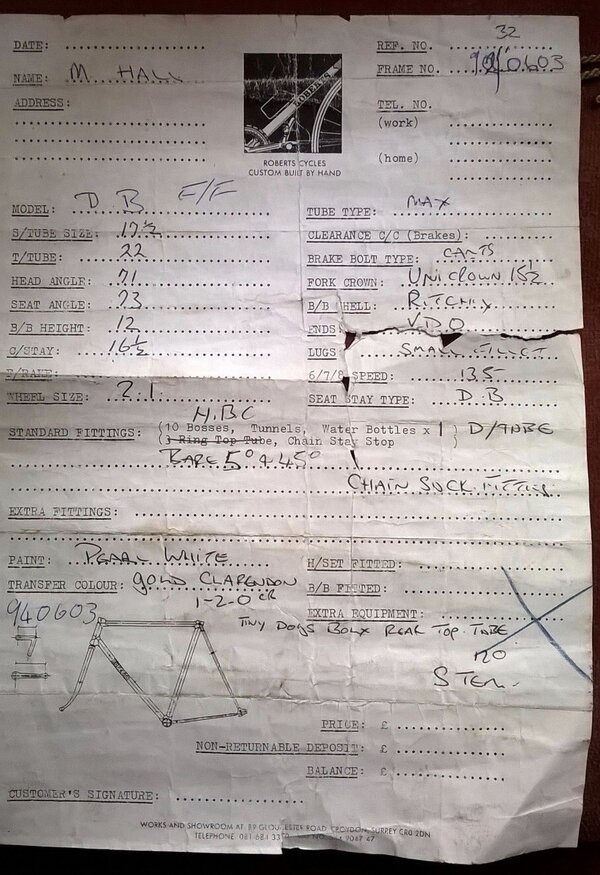 DATE:
REF. NO. 32
NAME: M HALL
FRAME NO. 940603
ADDRESS:
TEL. NO.
(work)
(home)
ROBERTS
ROBERTS CYCLES
CUSTOM BUILT BY HAND
MODEL: D B F/F
TUBE TYPE: MAX
S/TUBE SIZE: 17½
CLEARANCE C/C (Brakes):
T/TUBE: 22
BRAKE BOLT TYPE: CANTS
HEAD ANGLE: 71
FORK CROWN: UNICROWN 152
SEAT ANGLE: 73
B/B SHELL: RITCHIY
B/B HEIGHT: 12
ENDS VDO
C/STAY: 16½
LUGS SMALL FILLET
F/RAKE:
6/7/8 SPEED: 135
WHEEL SIZE: 2.1
SEAT STAY TYPE: D.B
H.BC
STANDARD FITTINGS: (10 Bosses, Tunnels, Water Bottles x 1 ) D/TUBE
(3 Ring Top Tube, Chain Stay Stop )
BARE 5° & 45°
CHAIN SUCK FITTING
EXTRA FITTINGS:
PAINT: PEARL WHITE
H/SET FITTED:
TRANSFER COLOUR: GOLD CLARENDON
B/B FITTED:
1-2-0
940603
EXTRA EQUIPMENT:
TINY DOGS BOLX REAR TOP TUBE
120
STEM
PRICE: £
NON-RETURNABLE DEPOSIT: £
BALANCE: £
CUSTOMER'S SIGNATURE:
WORKS AND SHOWROOM AT 89 GLOUCESTER ROAD, CROYDON, SURREY CR0 2DN
TELEPHONE: 081-684 33 NO. 9047 47